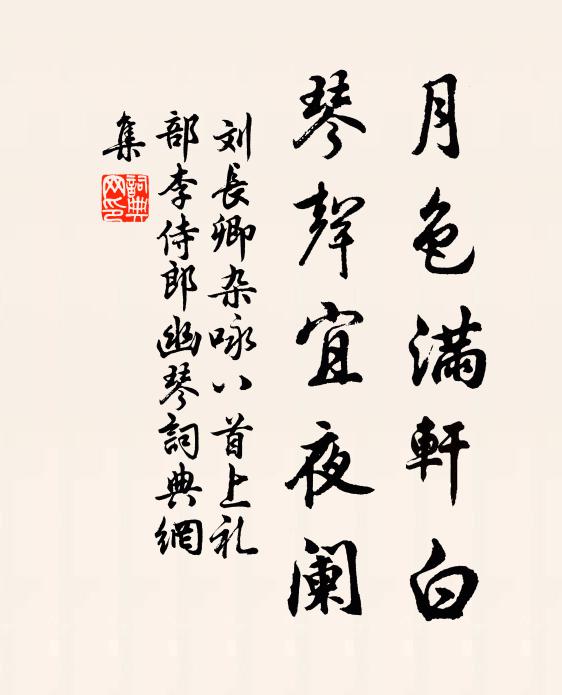 月色滿軒白
琴聲宜夜阑
刘長卿杂咏八首上礼
部李侍郎幽琴詞典網
集
詞典
网印